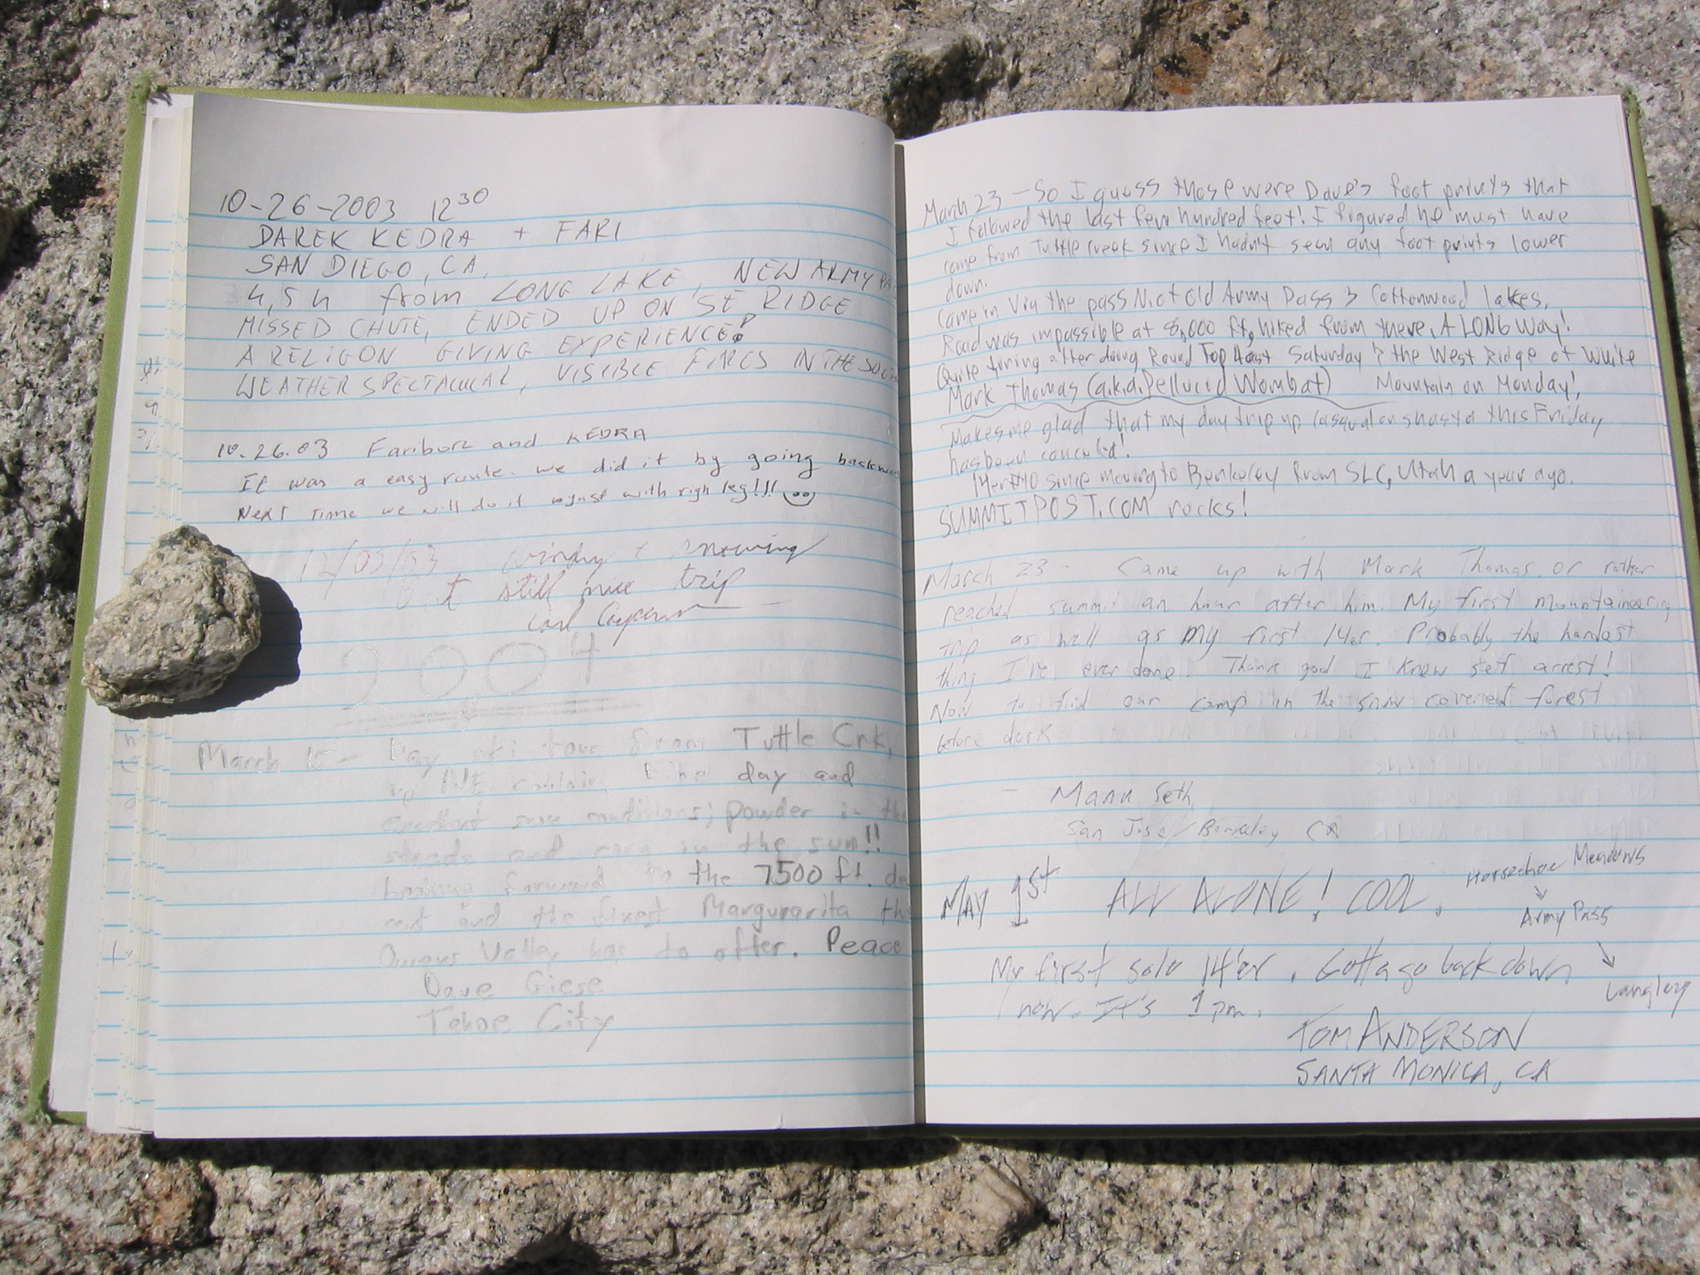 10-26-2003 12 30
DAREK KEDRA + FARI
SAN DIEGO, CA.
4,5 h from LONG LAKE, NEW ARMY
MISSED CHUTE, ENDED UP ON SE RIDGE
A RELIGON GIVING EXPERIENCE!
WEATHER SPECTACULAR, VISIBLE FIRES IN THE
10.26.03 Fariborz and KEDRA
It was a easy route. we did it by going
Next time we will do it with righ leg!!!
12/03/03, windy + snowing
but still nice trip
2004
March 15 - Day ski tour from Tuttle Crk,
up NE couloir. day and
snow conditions; powder in the
and corn in the sun!!
forward to the 7500 ft.
and the finest Margurarita
Owens Valley has to offer. Peace
Dave Giese
Tahoe City
March 23 - So I guess those were Dave's foot prints that
I followed the last few hundred feet! I figured he must have
came from Tuttle Creek since I hadn't seen any foot prints lower
down.
Came in via the pass N of Old Army Pass & Cottonwood Lakes.
Road was impassible at 8,000 ft, hiked from there, A LONG way!
Quite tiring after doing Round Top East Saturday & the West Ridge of White
Mark Thomas (a.k.a. Pellucid Wombat) Mountain on Monday!
Makes me glad that my day trip up on shasta this Friday
has been canceled!
14er #10 since moving to Berkeley from SLC, Utah a year ago.
SUMMITPOST.COM rocks!
March 23 - Came up with Mark Thomas, or rather
reached summit an hour after him. My first mountaineering
trip as well as my first 14er. Probably the hardest
thing I've ever done. Thank god I knew self arrest!
Now to find our camp in the snow covered forest
before dark
- Manu Seth
San Jose/Berkeley CA
MAY 1st ALL ALONE! COOL. Horseshoe Meadows
Army Pass
Langley
My first solo 14'er. Gotta go back down
now. It's 1 pm.
TOM ANDERSON
SANTA MONICA, CA